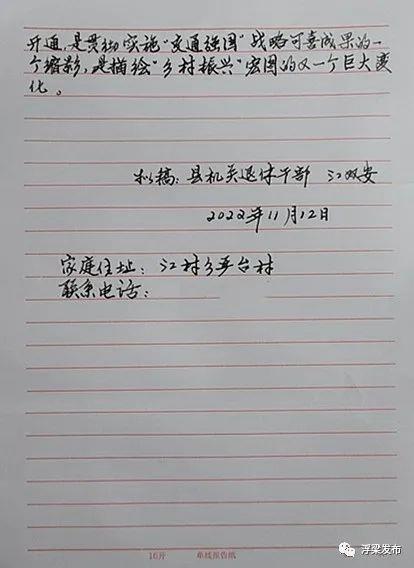 开通，是贯彻实施"交通强国"战略可喜成果的一
个缩影，是描绘"乡村振兴"宏图的又一个巨大变
化。
拟稿：县机关退休干部 江双安
2022年11月12日
家庭住址：江村乡平台村
联系电话：
16开 单线报告纸
浮梁发布